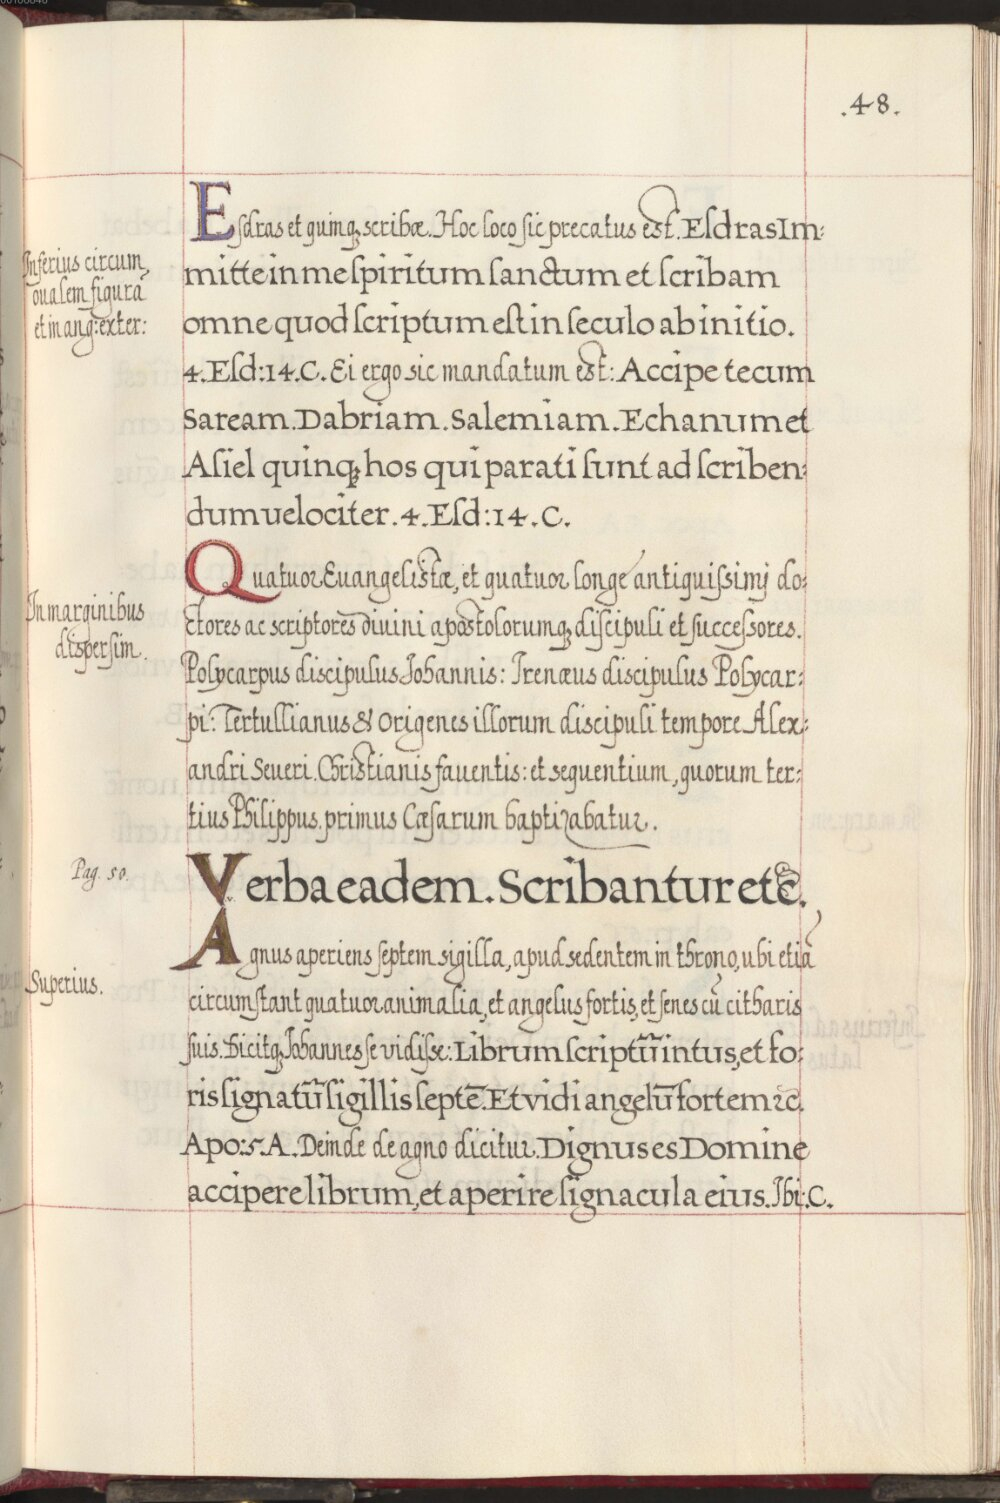 .48.
Esdras et quinq; scribæ. Hoc loco sic precatus est. Esdras Im:
mitte in me spiritum sanctum et scribam
omne quod scriptum est in seculo ab initio.
4. Esd: 14. C. Ei ergo sic mandatum est: Accipe tecum
Saream. Dabriam. Salemiam. Echanum et
Asiel quinq; hos qui parati sunt ad scriben:
dum uelociter. 4. Esd: 14. C.
Inferius circum
oualem figurã
et in ang: exter:
Quatuor Euangelistæ, et quatuor longe antiquissimj do:
ctores ac scriptores diuini apostolorumq; discipuli et successores.
Polycarpus discipulus Johannis: Irenæus discipulus Polycar:
pi: Tertullianus & Origenes illorum discipuli tempore Alex:
andri Seueri. Christianis fauentis: et sequentium, quorum ter:
tius Philippus. primus Cæsarum baptizabatur.
In marginibus
dispersim.
Verba eadem. Scribantur etc̃.
Pag. 50.
Agnus aperiens septem sigilla, apud sedentem in throno, ubi etiã
circumstant quatuor animalia, et angelus fortis, et senes cũ citharis
suis. Dicitq; Johannes se vidisse: Librum scriptũ intus, et fo:
ris signatũ sigillis septẽ. Et vidi angelũ fortem ꝛc.
Apo: 5. A. Deinde de agno dicitur. Dignus es Domine
accipere librum, et aperire signacula eius. Ibi: C.
Superius.